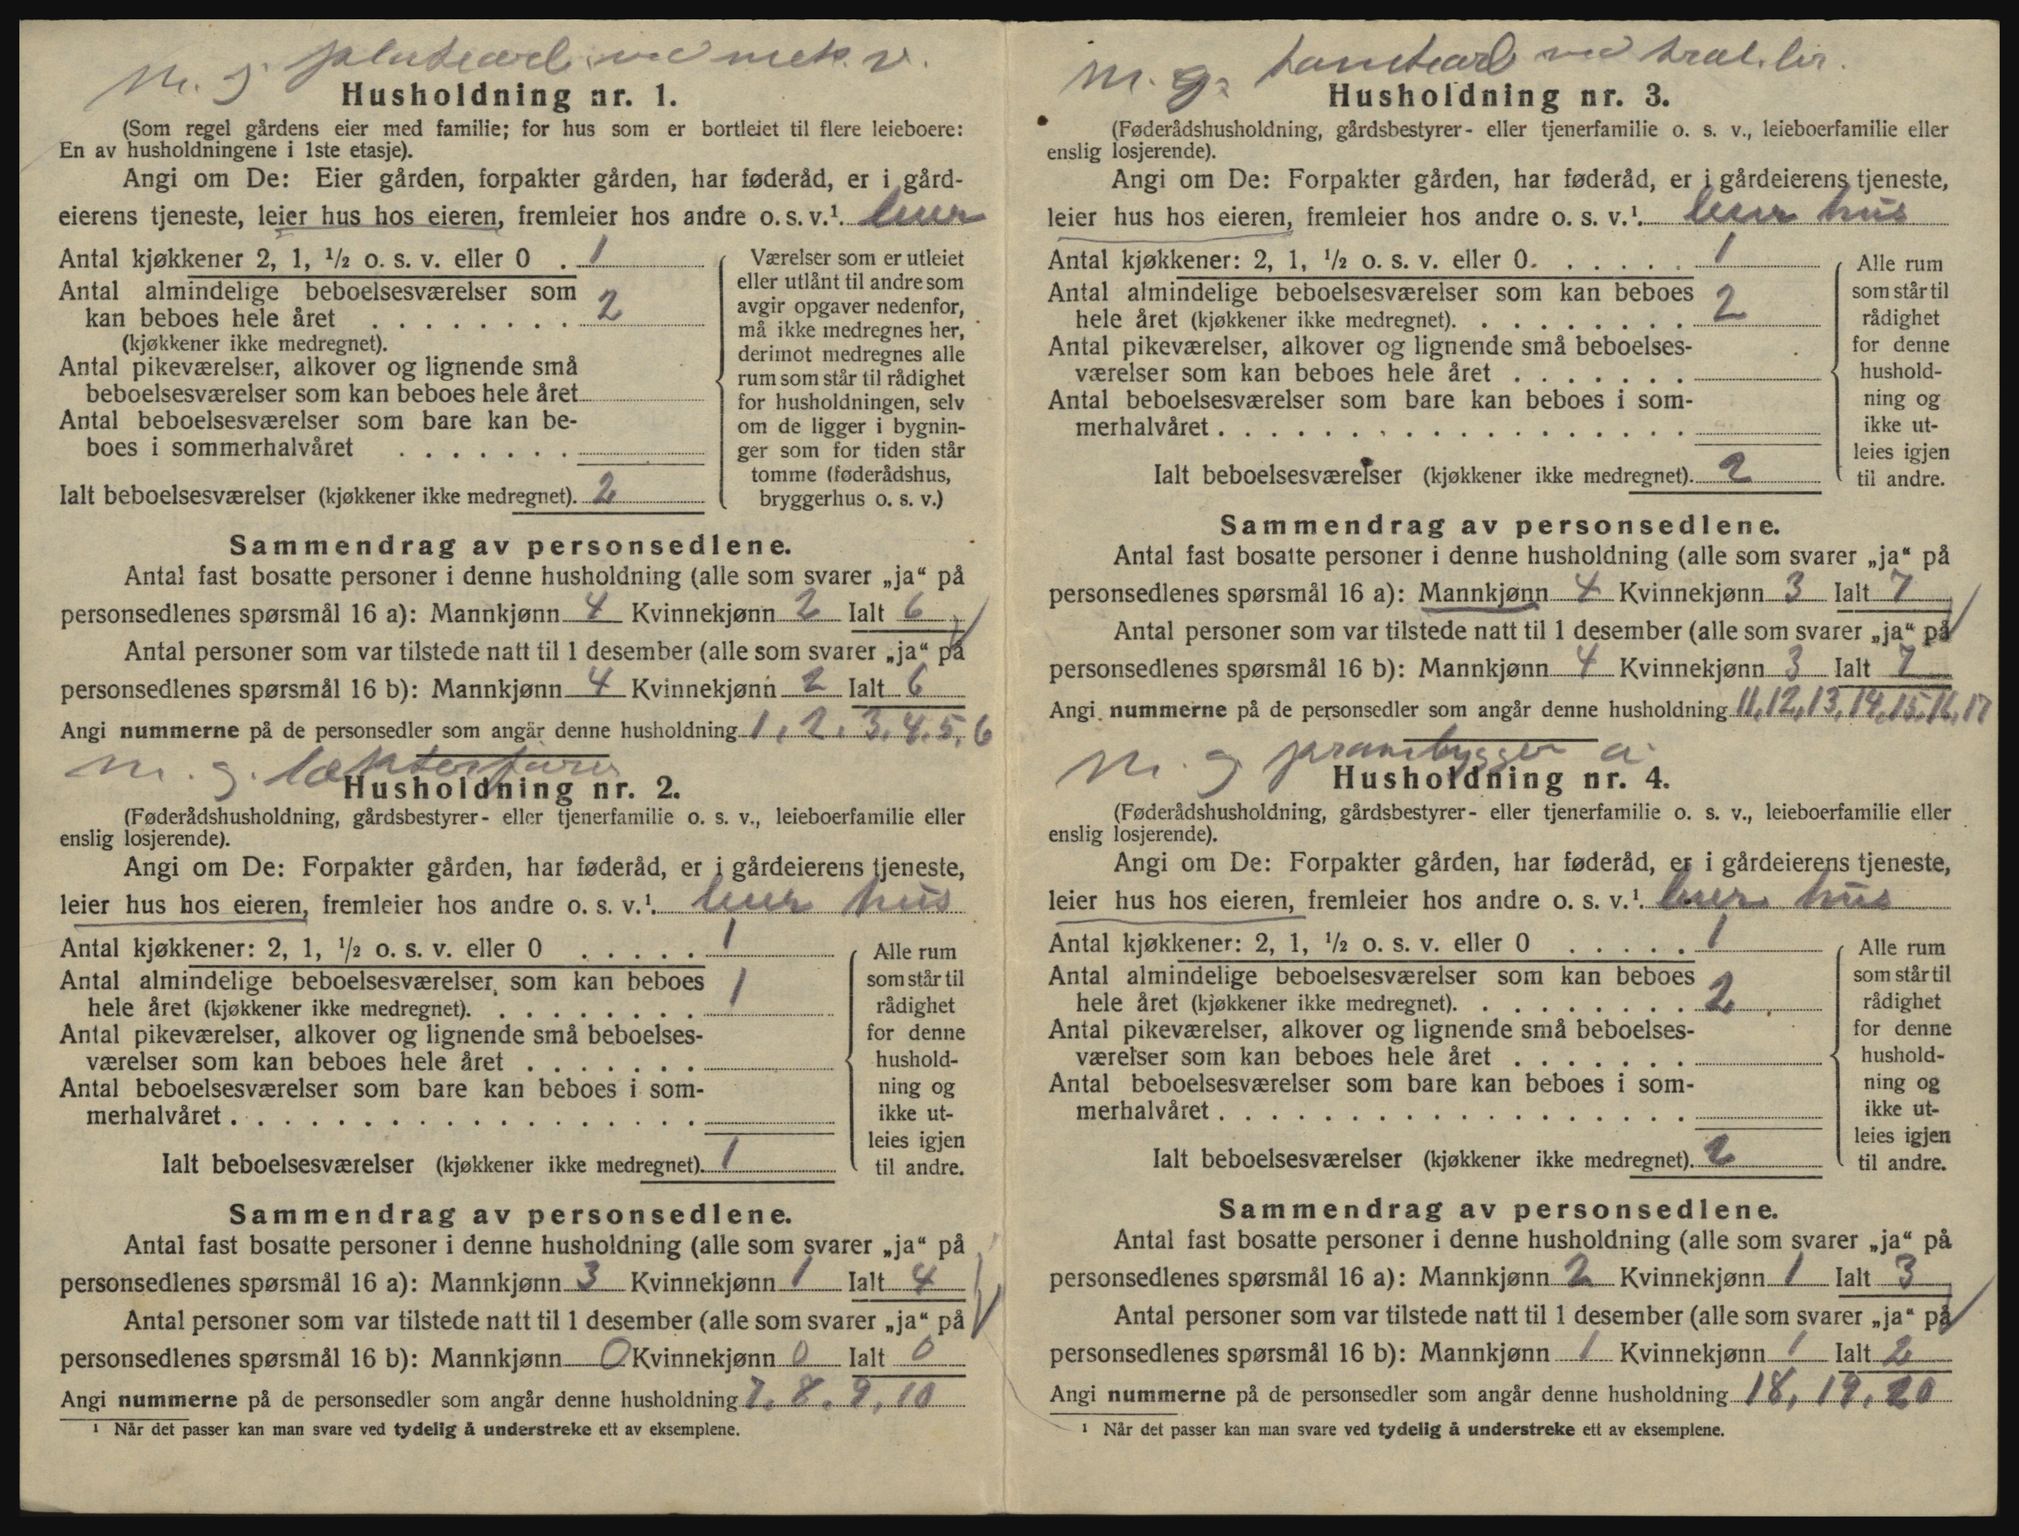 m. g. platearb. ved mek. v.
Husholdning nr. 1.
(Som regel gårdens eier med familie; for hus som er bortleiet til flere leieboere:
En av husholdningene i 1ste etasje).
Angi om De: Eier gården, forpakter gården, har føderåd, er i gård-
eierens tjeneste, leier hus hos eieren, fremleier hos andre o. s. v.¹. leier
Antal kjøkkener 2, 1, ½ o. s. v. eller 0 . 1
Antal almindelige beboelsesværelser som
kan beboes hele året . . . . . . . . 2
(kjøkkener ikke medregnet).
Antal pikeværelser, alkover og lignende små
beboelsesværelser som kan beboes hele året
Antal beboelsesværelser som bare kan be-
boes i sommerhalvåret . . . . . . .
Ialt beboelsesværelser (kjøkkener ikke medregnet). 2
Værelser som er utleiet
eller utlånt til andre som
avgir opgaver nedenfor,
må ikke medregnes her,
derimot medregnes alle
rum som står til rådighet
for husholdningen, selv
om de ligger i bygnin-
ger som for tiden står
tomme (føderådshus,
bryggerhus o. s. v.)
Sammendrag av personsedlene.
Antal fast bosatte personer i denne husholdning (alle som svarer „ja“ på
personsedlenes spørsmål 16 a): Mannkjønn 4 Kvinnekjønn 2 Ialt 6
Antal personer som var tilstede natt til 1 desember (alle som svarer „ja“ på
personsedlenes spørsmål 16 b): Mannkjønn 4 Kvinnekjønn 2 Ialt 6
Angi nummerne på de personsedler som angår denne husholdning 1, 2, 3, 4, 5, 6
m. g.
Husholdning nr. 2.
(Føderådshusholdning, gårdsbestyrer- eller tjenerfamilie o. s. v., leieboerfamilie eller
enslig losjerende).
Angi om De: Forpakter gården, har føderåd, er i gårdeierens tjeneste,
leier hus hos eieren, fremleier hos andre o. s. v.¹. leier hus
Antal kjøkkener: 2, 1, ½ o. s. v. eller 0 . . . . . 1
Antal almindelige beboelsesværelser som kan beboes
hele året (kjøkkener ikke medregnet). . . . . . . . . 1
Antal pikeværelser, alkover og lignende små beboelses-
værelser som kan beboes hele året . . . . . . .
Antal beboelsesværelser som bare kan beboes i som-
merhalvåret . . . . . . . . . . . . . . . . . .
Ialt beboelsesværelser (kjøkkener ikke medregnet). 1
Alle rum
som står til
rådighet
for denne
hushold-
ning og
ikke ut-
leies igjen
til andre.
Sammendrag av personsedlene.
Antal fast bosatte personer i denne husholdning (alle som svarer „ja“ på
personsedlenes spørsmål 16 a): Mannkjønn 3 Kvinnekjønn 1 Ialt 4
Antal personer som var tilstede natt til 1 desember (alle som svarer „ja“ på
personsedlenes spørsmål 16 b): Mannkjønn 0 Kvinnekjønn 0 Ialt 0
Angi nummerne på de personsedler som angår denne husholdning 7, 8, 9, 10
¹ Når det passer kan man svare ved tydelig å understreke ett av eksemplene.
m. g. ved
Husholdning nr. 3.
(Føderådshusholdning, gårdsbestyrer- eller tjenerfamilie o. s. v., leieboerfamilie eller
enslig losjerende).
Angi om De: Forpakter gården, har føderåd, er i gårdeierens tjeneste,
leier hus hos eieren, fremleier hos andre o. s. v.¹. leier hus
Antal kjøkkener: 2, 1, ½ o. s. v. eller 0. . . . . . 1
Antal almindelige beboelsesværelser som kan beboes
hele året (kjøkkener ikke medregnet). . . . . . . . . 2
Antal pikeværelser, alkover og lignende små beboelses-
værelser som kan beboes hele året . . . . . . .
Antal beboelsesværelser som bare kan beboes i som-
merhalvåret . . . . . . . . . . . . . . . . . .
Ialt beboelsesværelser (kjøkkener ikke medregnet). 2
Alle rum
som står til
rådighet
for denne
hushold-
ning og
ikke ut-
leies igjen
til andre.
Sammendrag av personsedlene.
Antal fast bosatte personer i denne husholdning (alle som svarer „ja“ på
personsedlenes spørsmål 16 a): Mannkjønn 4 Kvinnekjønn 3 Ialt 7
Antal personer som var tilstede natt til 1 desember (alle som svarer „ja“ på
personsedlenes spørsmål 16 b): Mannkjønn 4 Kvinnekjønn 3 Ialt 7
Angi nummerne på de personsedler som angår denne husholdning 11, 12, 13, 14, 15, 16, 17
m. g. prambygger a.
Husholdning nr. 4.
(Føderådshusholdning, gårdsbestyrer- eller tjenerfamilie o. s. v., leieboerfamilie eller
enslig losjerende).
Angi om De: Forpakter gården, har føderåd, er i gårdeierens tjeneste,
leier hus hos eieren, fremleier hos andre o. s. v.¹. leier hus
Antal kjøkkener: 2, 1, ½ o. s. v. eller 0 . . . . . 1
Antal almindelige beboelsesværelser som kan beboes
hele året (kjøkkener ikke medregnet). . . . . . . . . 2
Antal pikeværelser, alkover og lignende små beboelses-
værelser som kan beboes hele året . . . . . . .
Antal beboelsesværelser som bare kan beboes i som-
merhalvåret . . . . . . . . . . . . . . . . . .
Ialt beboelsesværelser (kjøkkener ikke medregnet). 2
Alle rum
som står til
rådighet
for denne
hushold-
ning og
ikke ut-
leies igjen
til andre.
Sammendrag av personsedlene.
Antal fast bosatte personer i denne husholdning (alle som svarer „ja“ på
personsedlenes spørsmål 16 a): Mannkjønn 2 Kvinnekjønn 1 Ialt 3
Antal personer som var tilstede natt til 1 desember (alle som svarer „ja“ på
personsedlenes spørsmål 16 b): Mannkjønn 1 Kvinnekjønn 1 Ialt 2
Angi nummerne på de personsedler som angår denne husholdning 18, 19, 20
¹ Når det passer kan man svare ved tydelig å understreke ett av eksemplene.